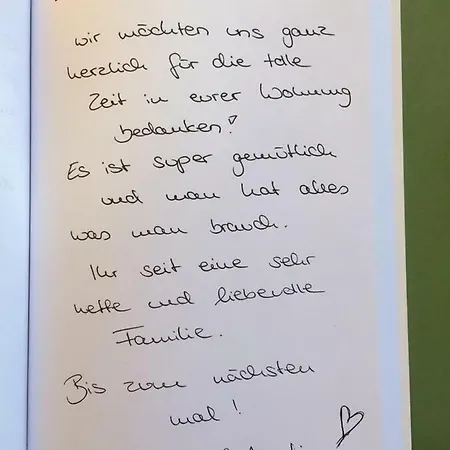 wir möchten uns ganz
herzlich für die tolle
Zeit in eurer Wohnung
bedanken!
Es ist super gemütlich
und man hat alles
was man brauch.
Ihr seit eine sehr
nette und liebevolle
Familie.
Bis zum nächsten
mal!